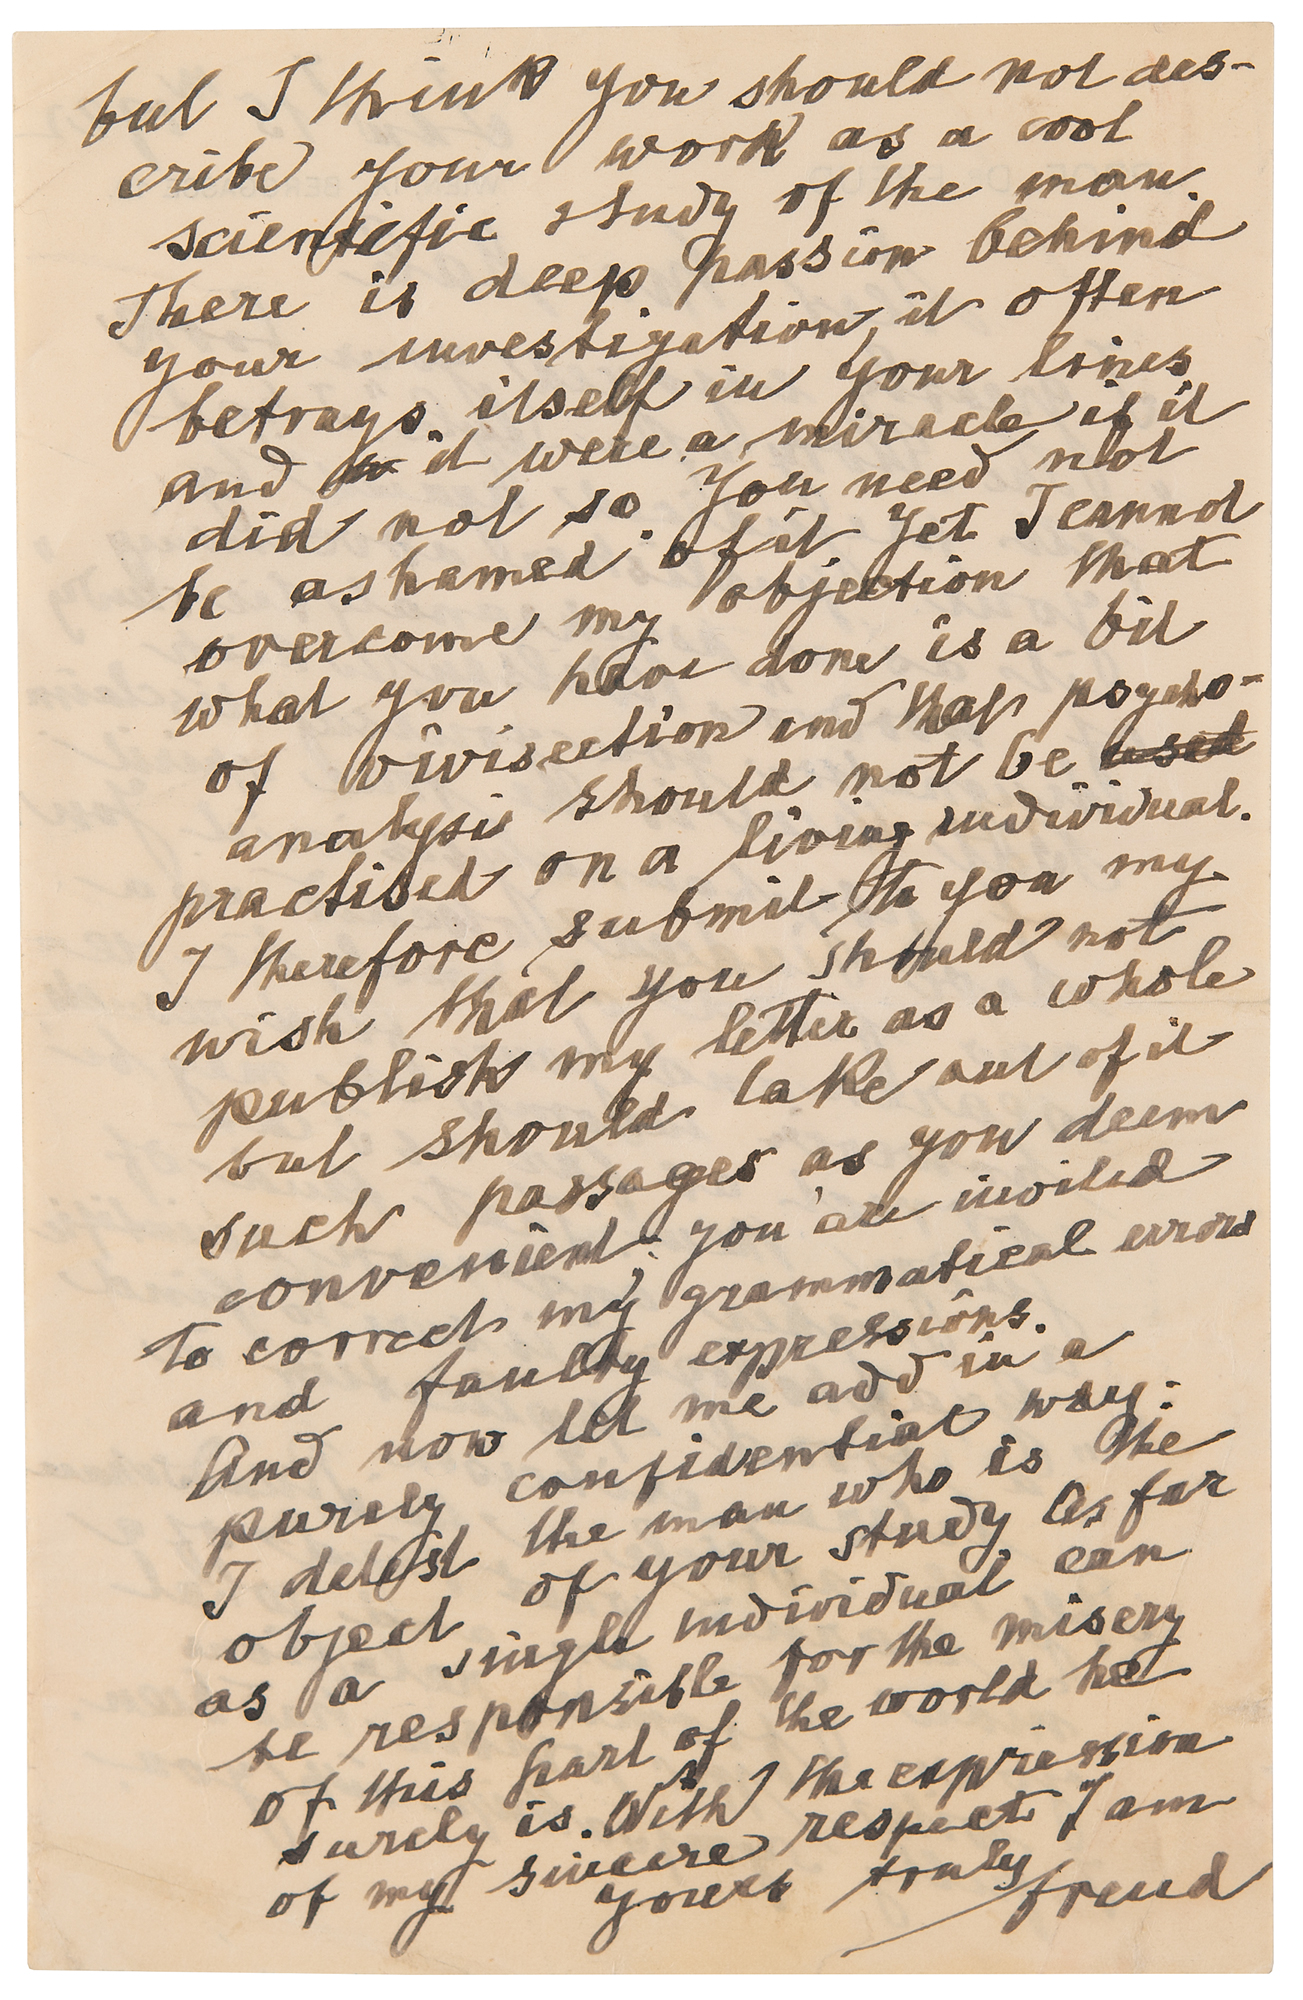 but I think you should not des-
cribe your work as a cool
scientific study of the man.
There is deep passion behind
your investigation, it often
betrays itself in your lines
and it were a miracle if it
did not so. You need not
be ashamed of it. Yet I cannot
overcome my objection that
what you have done is a bit
of vivisection and that psycho-
analysis should not be used
practised on a living individual.
I therefore submit to you my
wish that you should not
publish my letter as a whole
but should take out of it
such passages as you deem
convenient; you are invited
to correct my grammatical errors
and faulty expressions.
And now let me add in a
purely confidential way:
I detest the man who is the
object of your study. As far
as a single individual can
be responsible for the misery
of this part of the world he
surely is. With the expression
of my sincere respect I am
yours truly
Freud